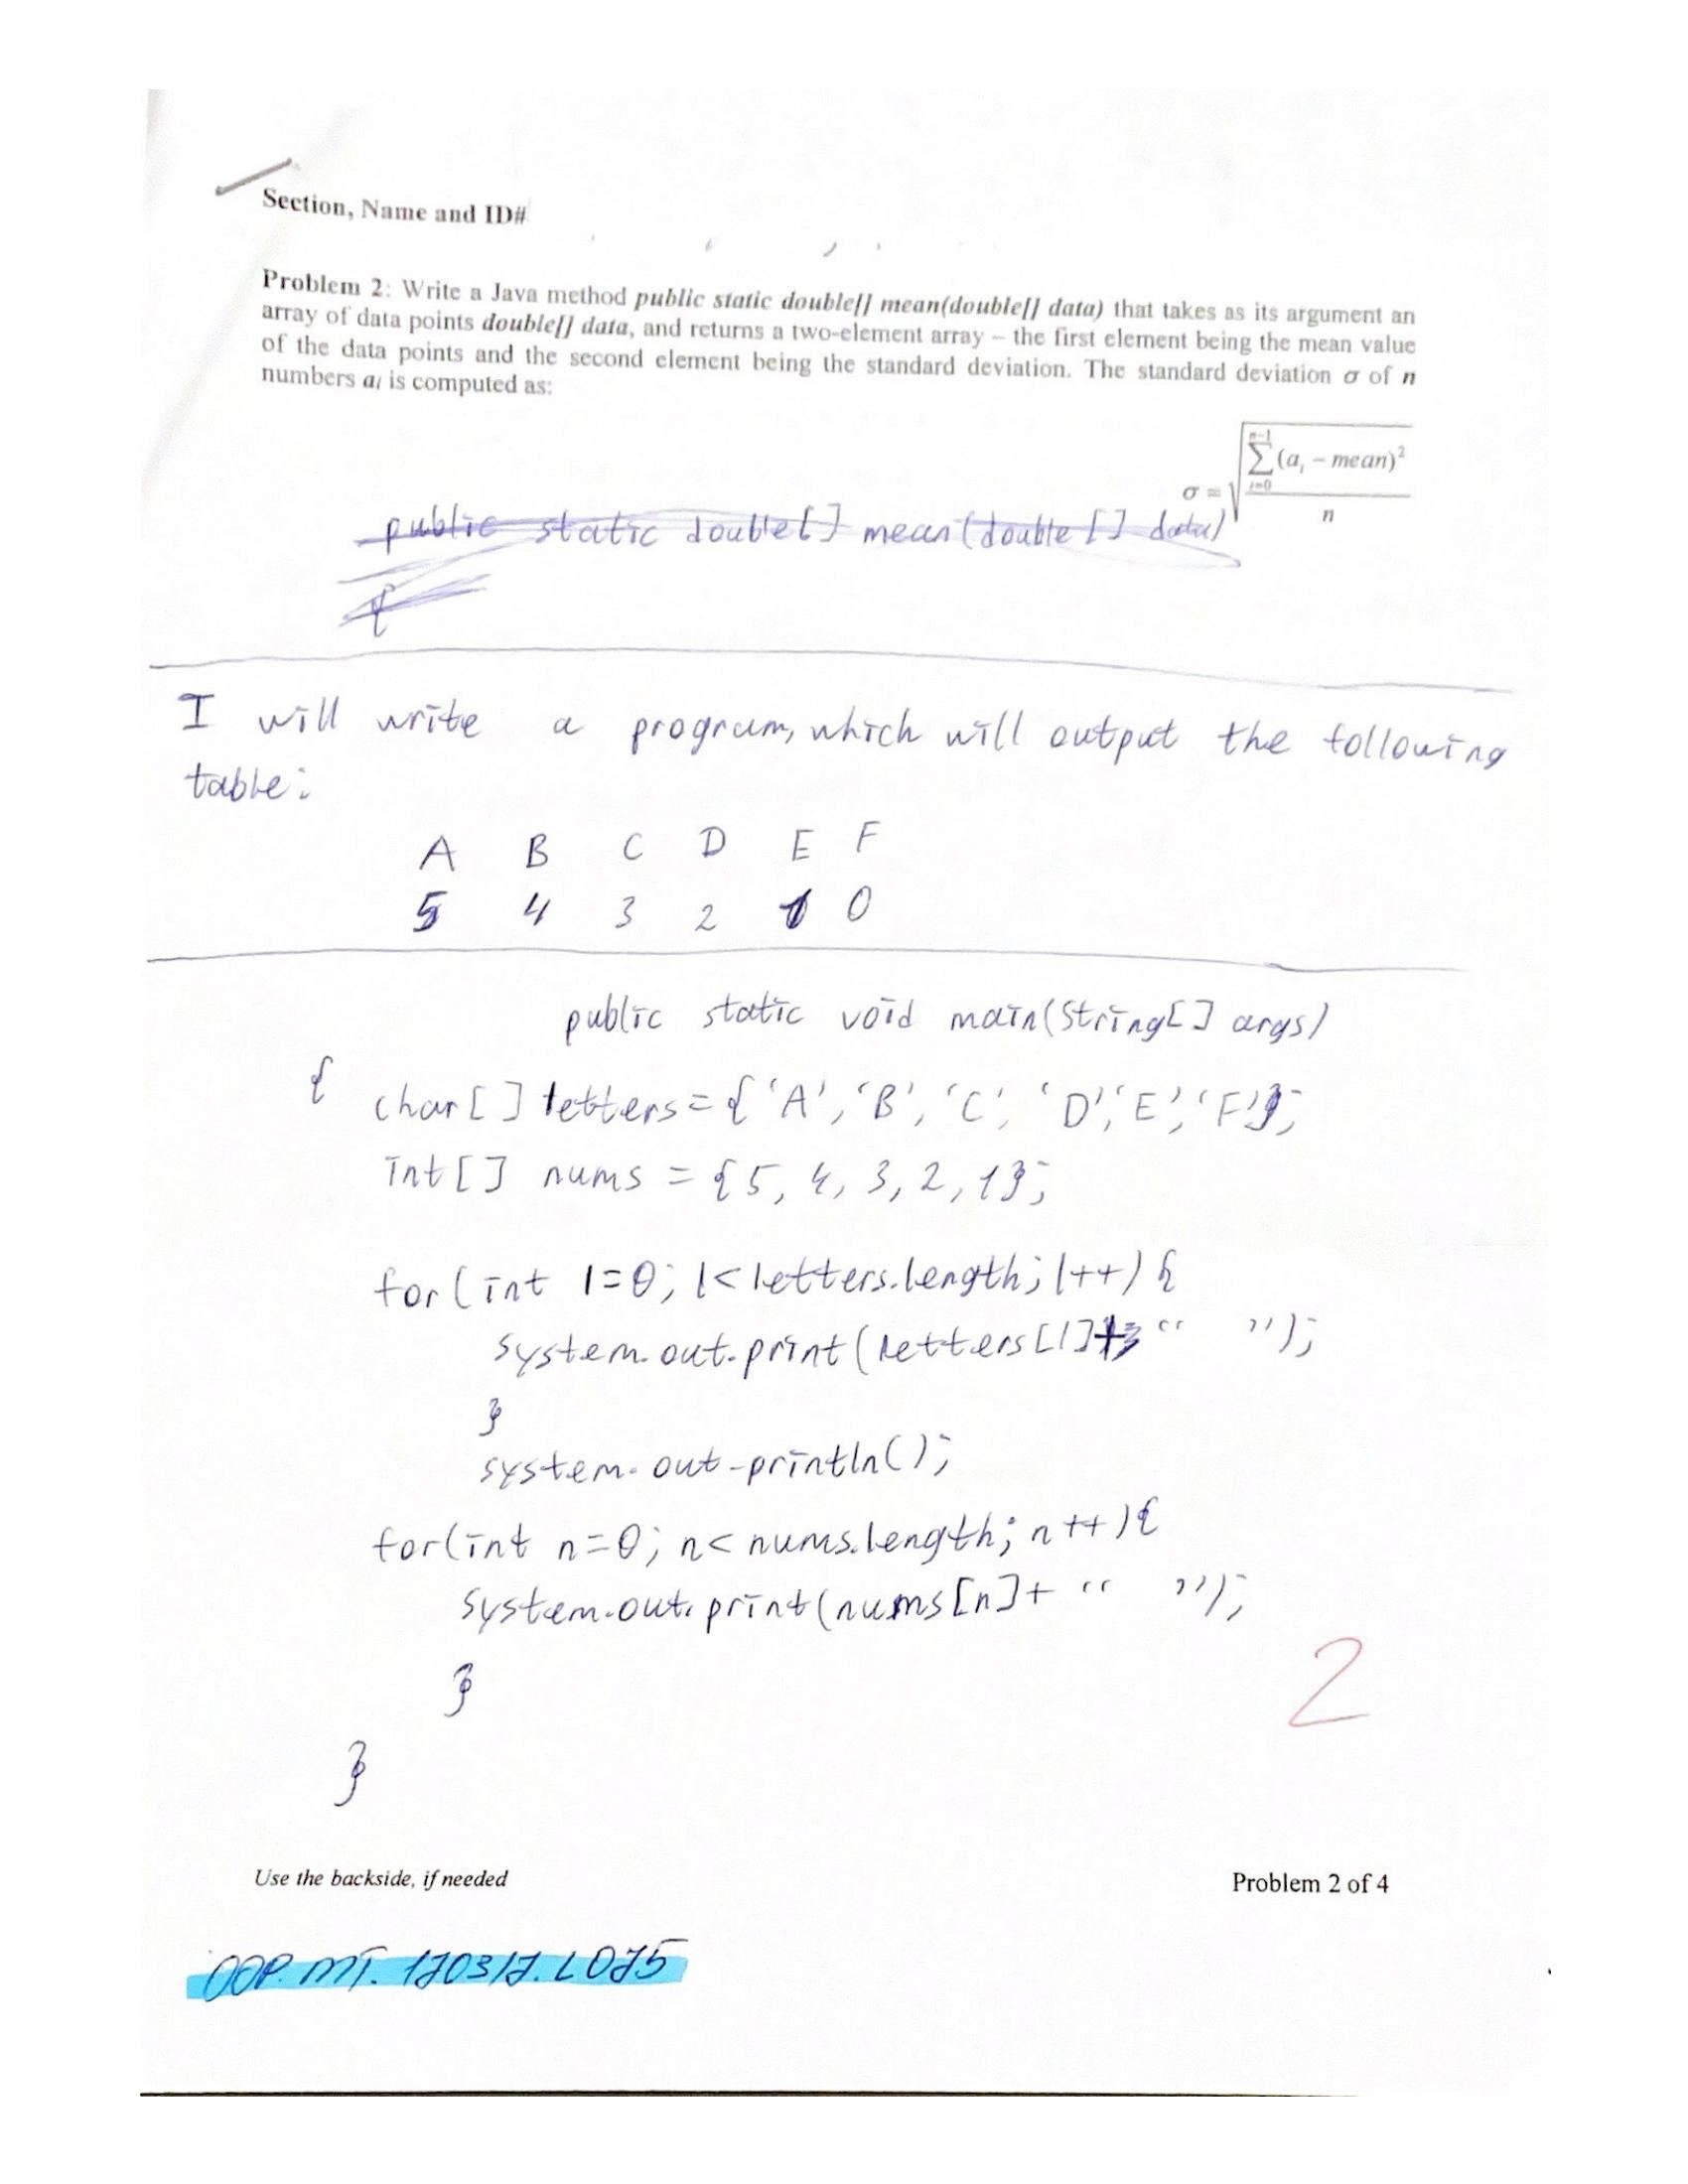 Section, Name and ID#
Problem 2: Write a Java method public static double[] mean(double[] data) that takes as its argument an
array of data points double[] data, and returns a two-element array – the first element being the mean value
of the data points and the second element being the standard deviation. The standard deviation σ of n
numbers aᵢ is computed as:
σ = √(∑_{i=0}^{n-1}(aᵢ – mean)² / n)
public static double[] mean(double[] data)
{
I will write a program, which will output the following
table:
A B C D E F
5 4 3 2 1 0
public static void main(String[] args)
{
char[] letters={'A', 'B', 'C', 'D', 'E', 'F'};
int[] nums = {5, 4, 3, 2, 1};
for(int l=0; l<letters.length; l++){
system.out.print(letters[l]+ "   ");
}
system.out.println();
for(int n=0; n<nums.length; n++){
system.out.print(nums[n]+ "   ");
}
}
2
Use the backside, if needed
Problem 2 of 4
OOP.MT.170317.L075